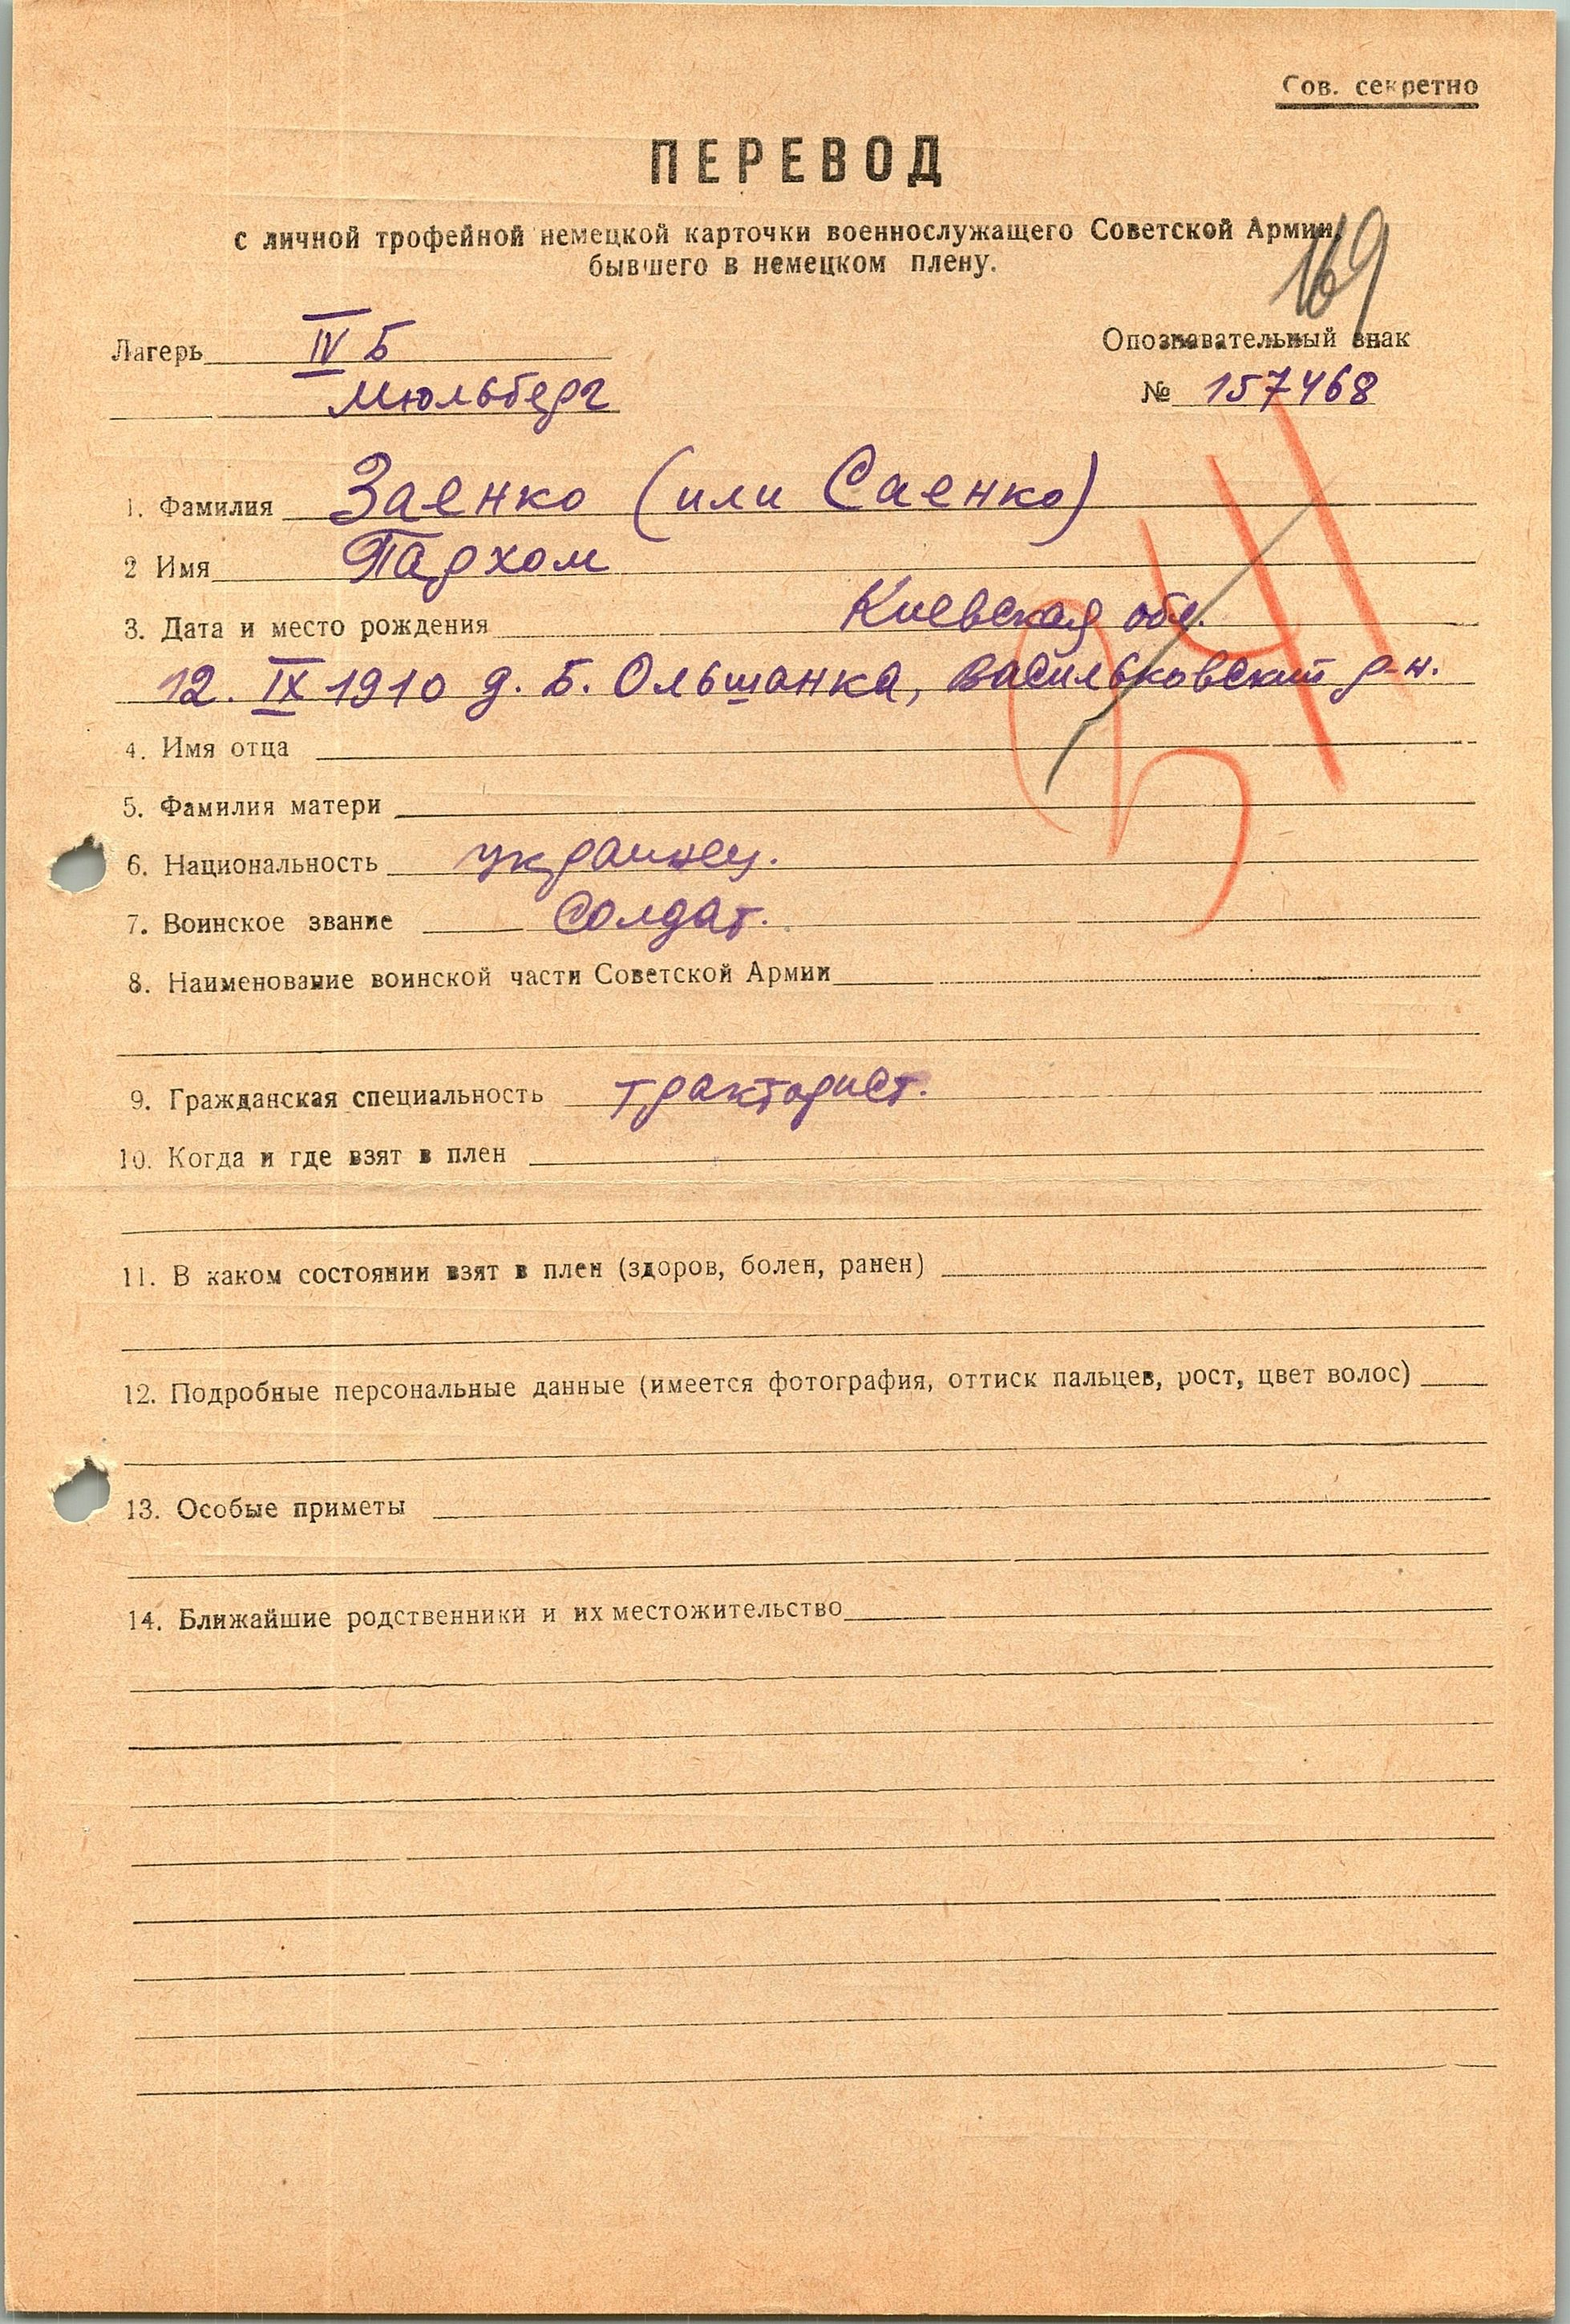 Сов. секретно
ПЕРЕВОД
с личной трофейной немецкой карточки военнослужащего Советской Армии,
бывшего в немецком плену.
169
Лагерь IV Б
Мюльберг
Опознавательный знак
№ 157468
1. Фамилия Заенко (или Саенко)
2 Имя Пархом
3. Дата и место рождения Киевская обл.
12. IX 1910 д. Б. Ольшанка, Васильковский р-н.
4. Имя отца
5. Фамилия матери
6. Национальность украинец.
7. Воинское звание Солдат.
8. Наименование воинской части Советской Армии
9. Гражданская специальность тракторист.
10. Когда и где взят в плен
11. В каком состоянии взят в плен (здоров, болен, ранен)
12. Подробные персональные данные (имеется фотография, оттиск пальцев, рост, цвет волос)
13. Особые приметы
14. Ближайшие родственники и их местожительство